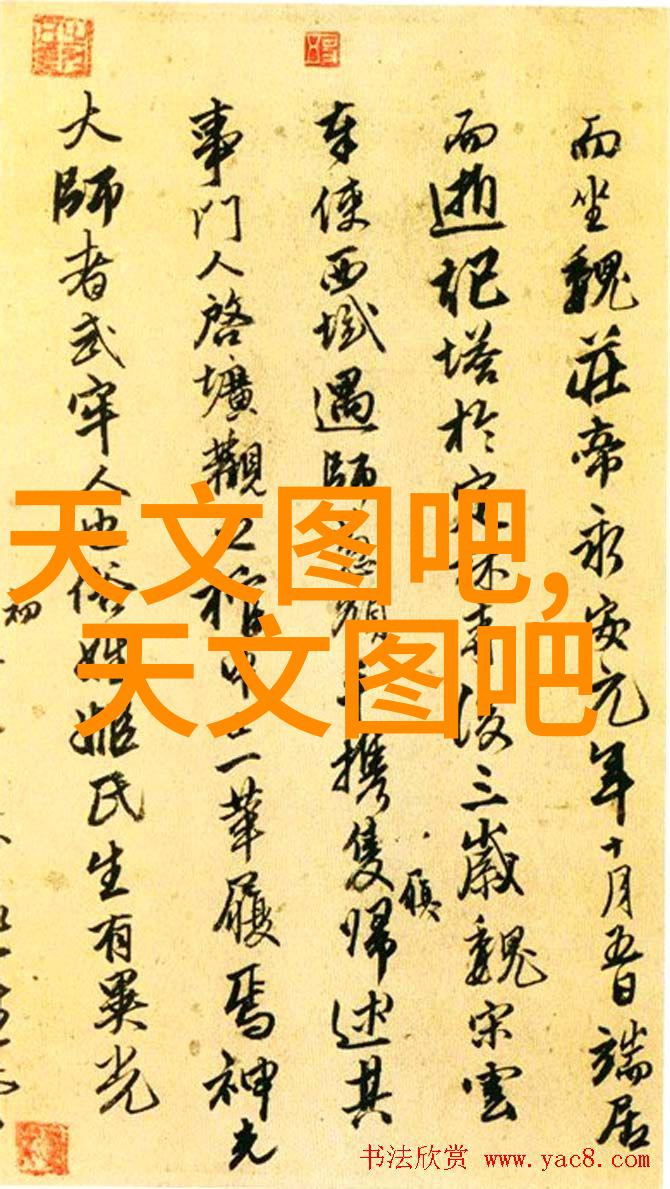 而坐魏莊帝永安元年十月五日端居
而逝記塔於定林寺後三歲魏宋雲
奉使西域遇師手攜隻歸述其
履
事門人啓壙觀之棺中一革履焉神光
大師者武牢人也俗姓姬氏生有異光
初
天文图吧,
天文图吧
书法欣赏 www.yac8.com